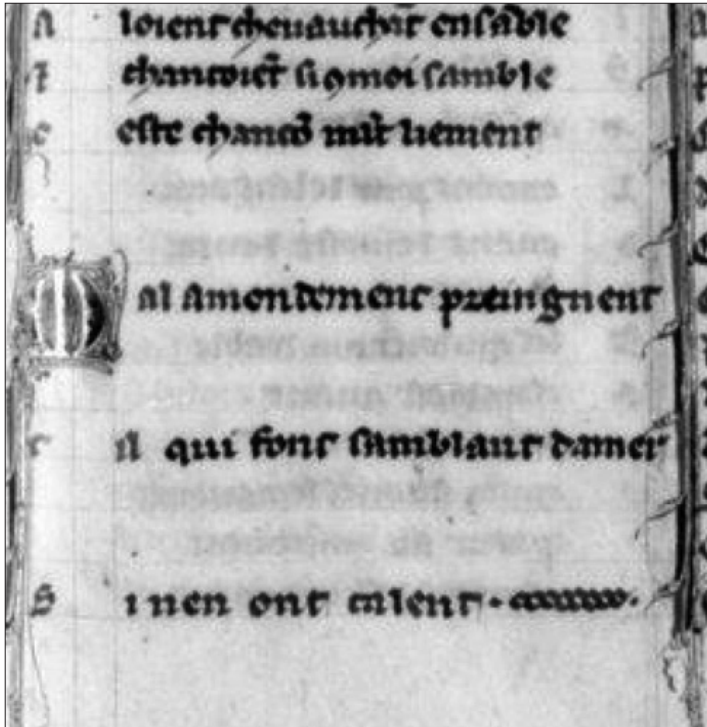 A loient cheuauchāt ensāble
⁊ chantoiēt si ꝯmoi samble
C este chancō mlt liement
M al amendement preingnent
C il qui font samblant damer
S i nen ont talent